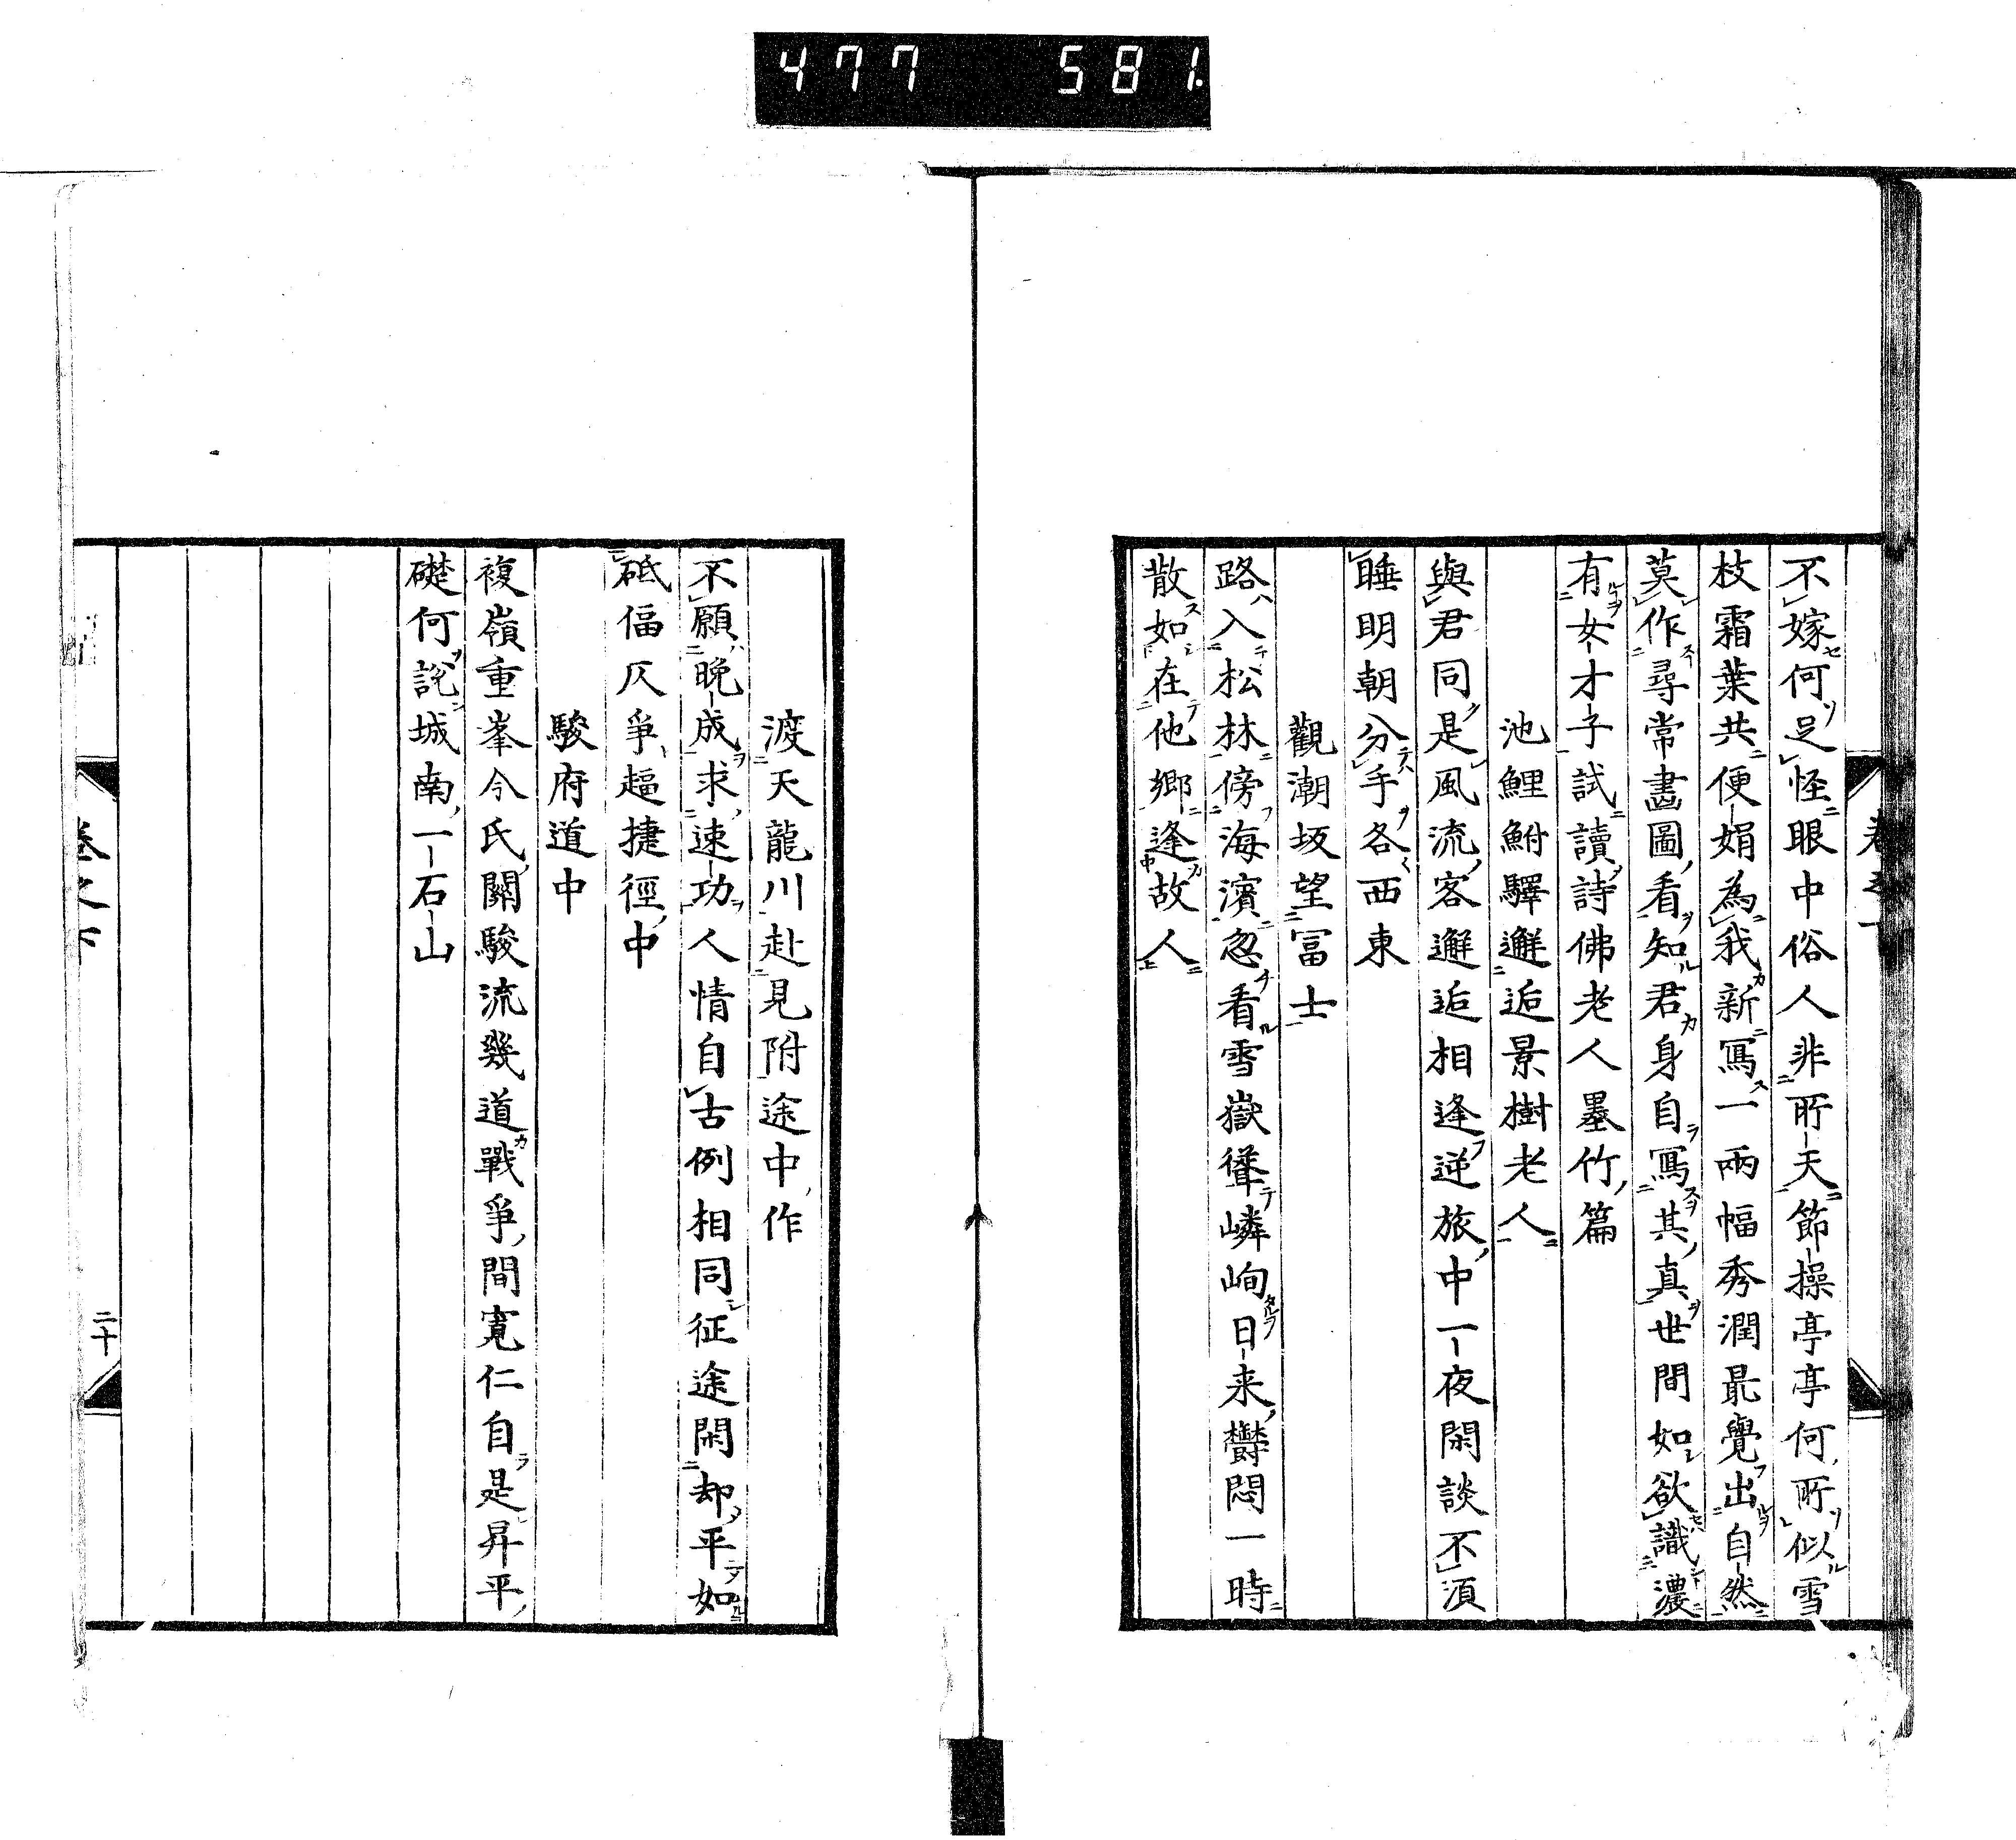 477 581
不嫁何足怪眼中俗人非所天節操亭亭何所似雪
枝霜葉共便娟為我新寫一兩幅秀潤最覺出自然
莫作尋常畫圖看知君身自寫其真世間如欲識濃
有女才子試讀詩佛老人墨竹篇
池鯉鮒驛邂逅景樹老人
與君同是風流客邂逅相逢逆旅中一夜閑談不須
睡明朝分手各西東
觀潮坂望冨士
路入松林傍海濱忽看雪嶽聳嶙峋日来欝悶一時
散如在他郷逢故人
渡天龍川赴見附途中作
不願晩成求速功人情自古例相同征途閑却平如
砥偪仄爭趨捷徑中
駿府道中
複嶺重峯今氏關駿流幾道戰爭間寛仁自是昇平
礎何說城南一石山
卷之下
二十